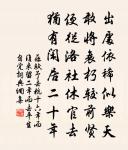 出處依稀似樂天
敢將衰朽較前賢
便從洛社休官去
猶有閒居二十年
蘇軾予去杭十六年而
復來留二年而去平生
自覺詞典網集